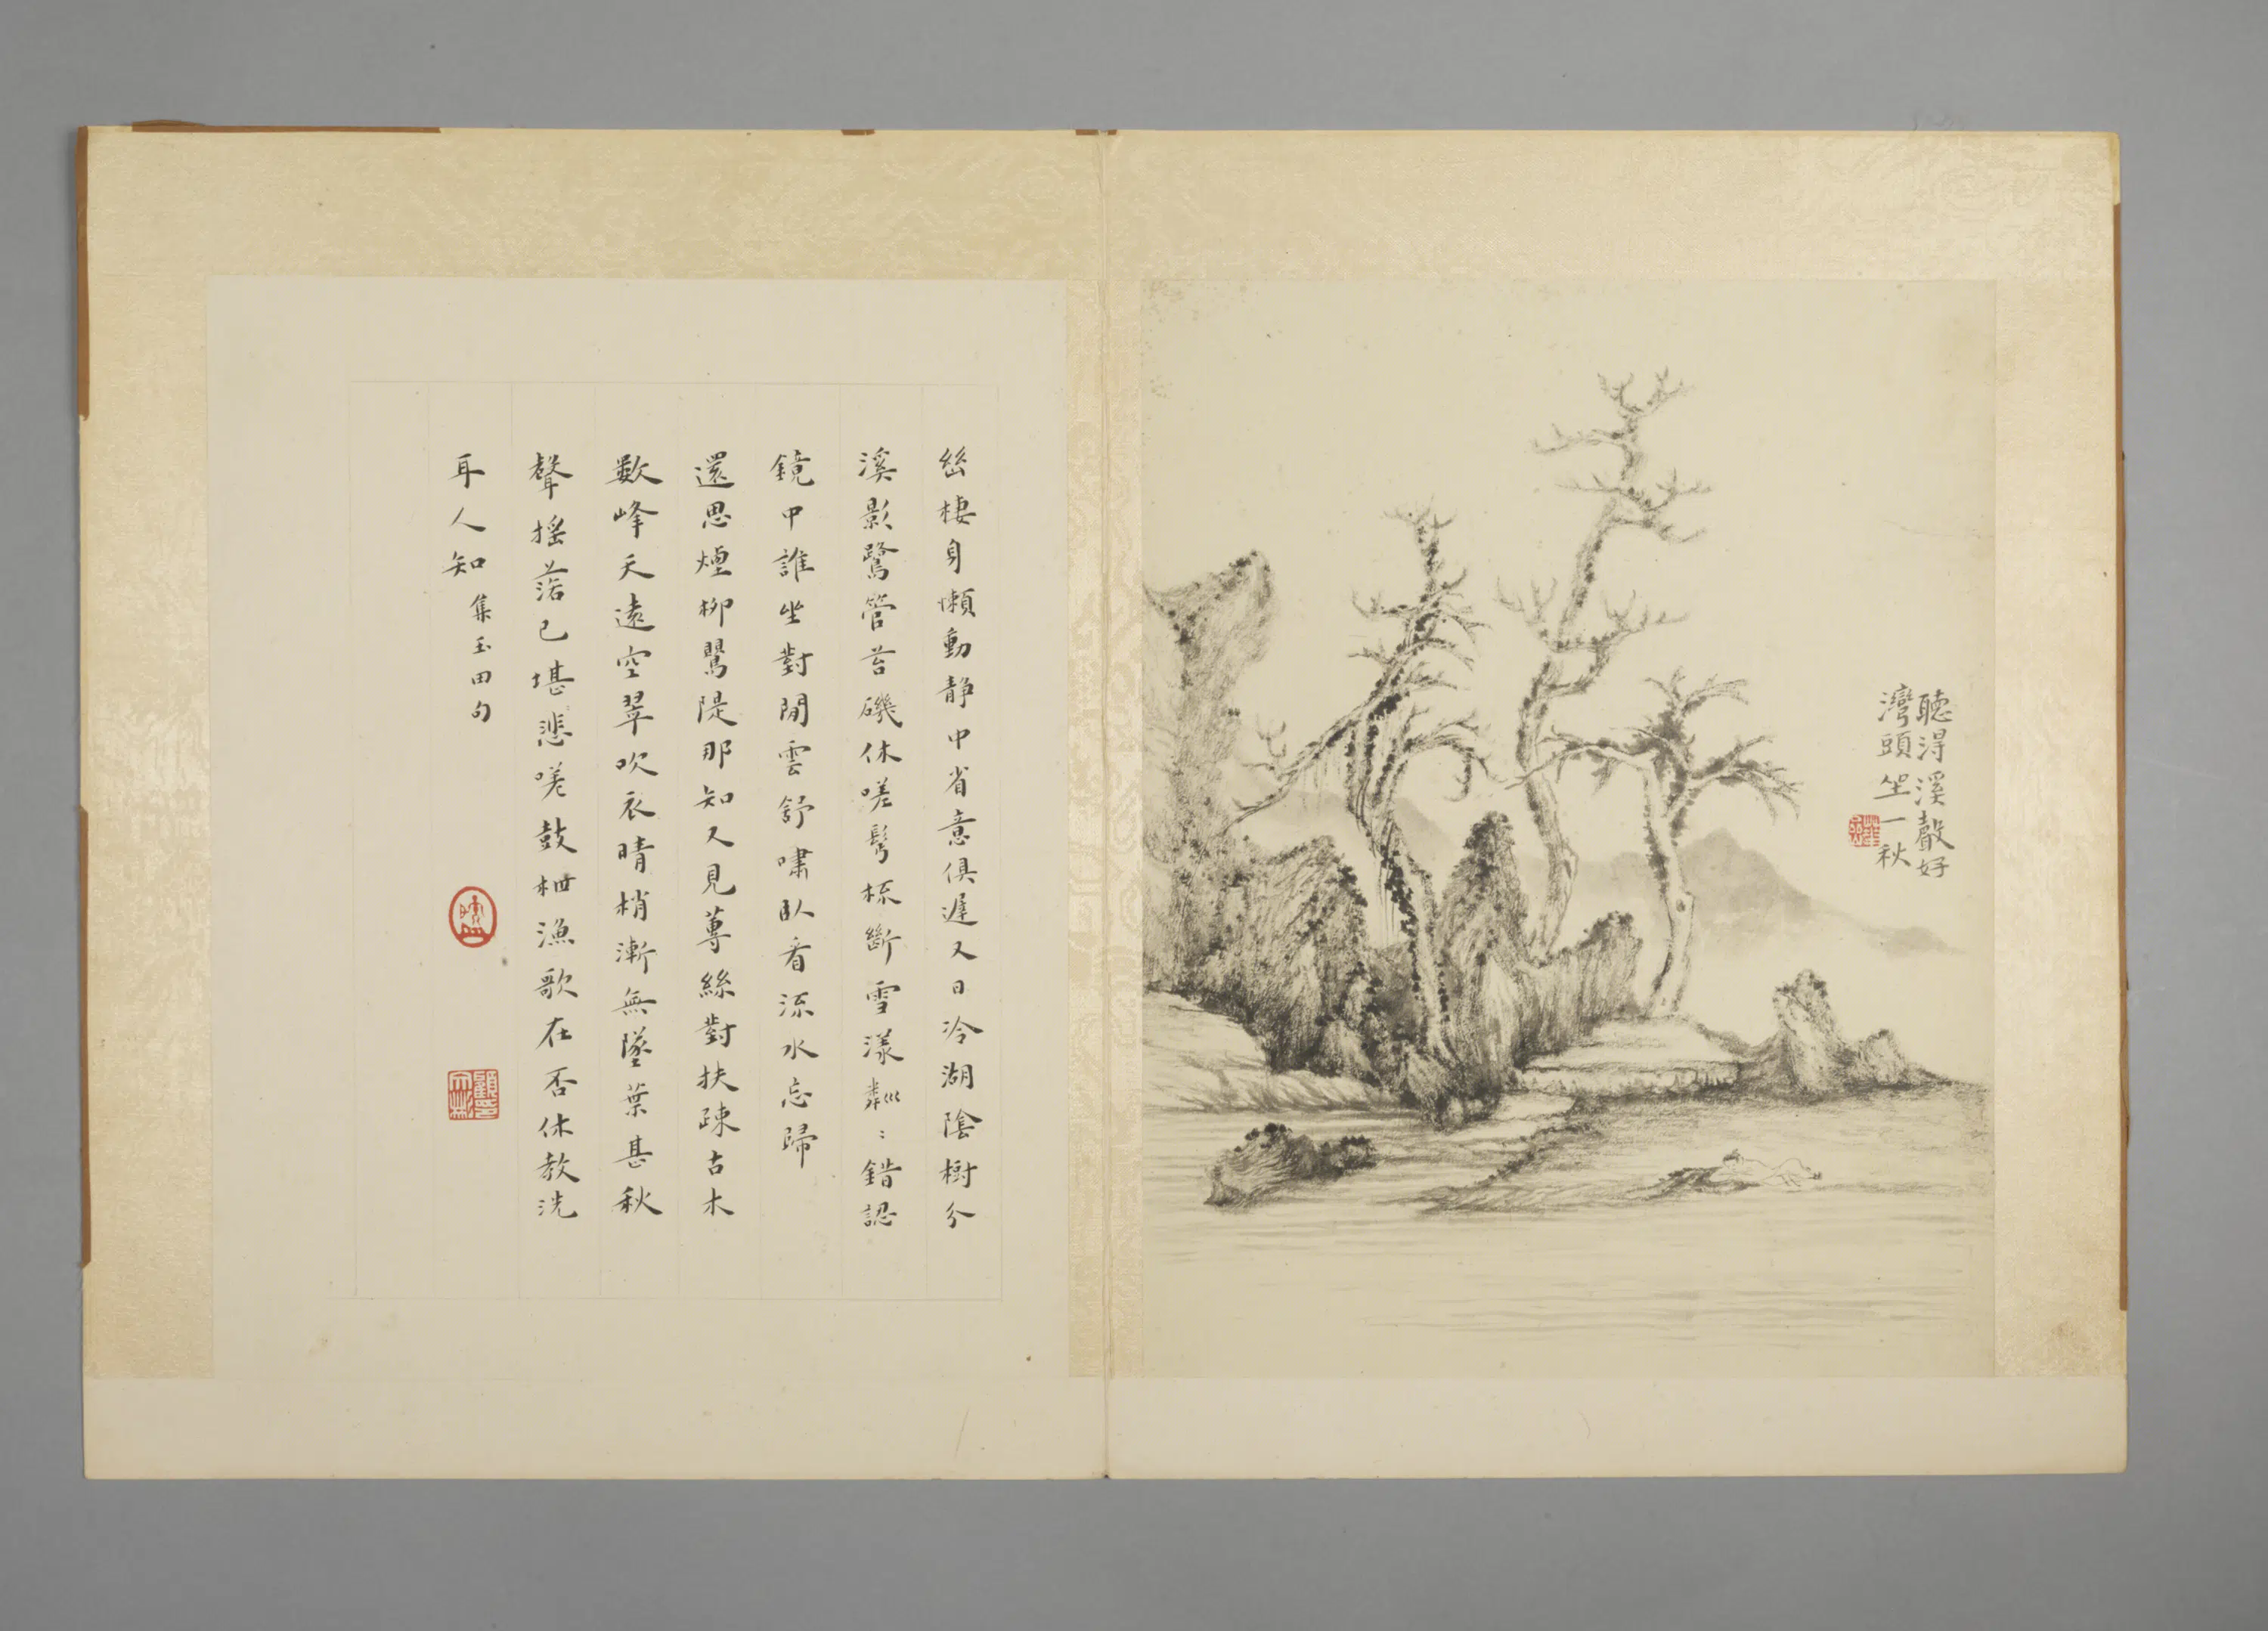 聽得溪聲好
灣頭坐一秋
幽棲身懶動静中省意俱遲又日冷湖陰樹分
溪影鷺管苔磯休嗟髩梳斷雪漾粼〻錯認
鏡中誰坐對閒雲舒嘯臥看流水忘歸
還思煙柳鸎隄那知又見蓴絲對扶疎古木
數峰天遠空翠吹衣晴梢漸無墜葉甚秋
聲搖落已堪悲嗟鼓枻漁歌在否休教洗
耳人知 集玉田句
顧印文彬